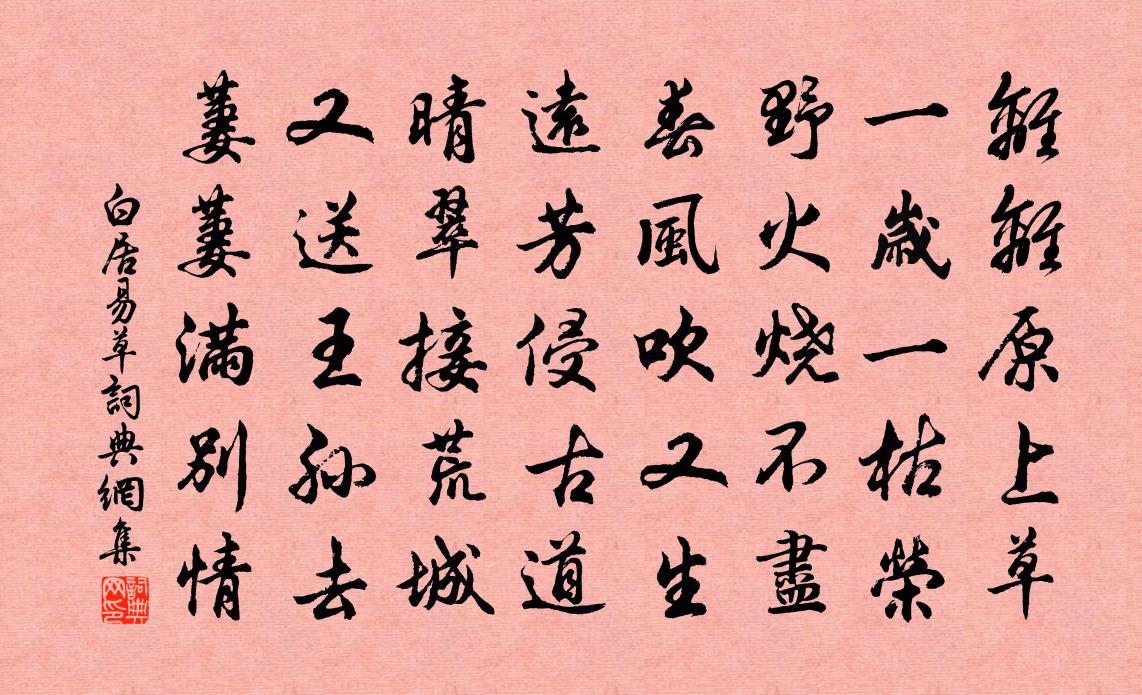 離離原上草
一歲一枯榮
野火燒不盡
春風吹又生
遠芳侵古道
晴翠接荒城
又送王孫去
萋萋滿別情
白居易草詞典網集
詞典网印